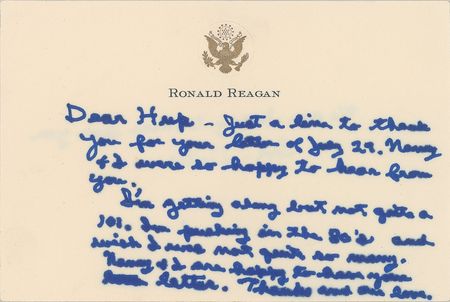 RONALD REAGAN
Dear Hup – Just a line to thank
you for your letter of July 29. Nancy
& I were so happy to hear from
you.
I'm getting along but not quite a
101. I'm pushing in the 80's and
wish I was not quite so many.
Nancy & I are happy to have you
letter. Thanks and our love.